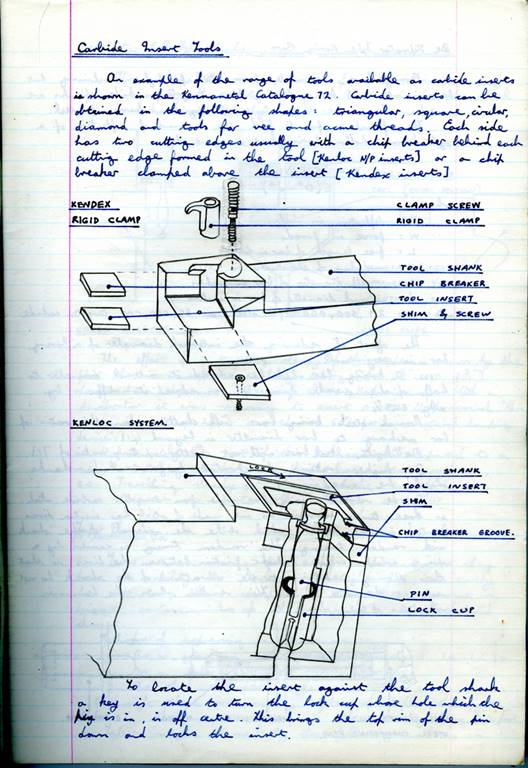 Carbide Insert Tools
An example of the range of tools available as cabide inserts
is shown in the Kennametal Catalogue 72. Carbide inserts can be
obtained in the following shapes: triangular, square, circular,
diamond and tools for vee and acme threads. Each side
has two cutting edges usually with a chip breaker behind each
cutting edge formed in the tool [Kenloc N/P inserts] or a chip
breaker clamped above the insert [Kendex inserts]
KENDEX
RIGID CLAMP
CLAMP SCREW
RIGID CLAMP
TOOL SHANK
CHIP BREAKER
TOOL INSERT
SHIM & SCREW
KENLOC SYSTEM
LOCK
TOOL SHANK
TOOL INSERT
SHIM
CHIP BREAKER GROOVE.
PIN
LOCK CUP
To locate the insert against the tool shank
a key is used to turn the lock cup whose hole which the
is in, is off centre. This brings the top rim of the pin
down and locks the insert.